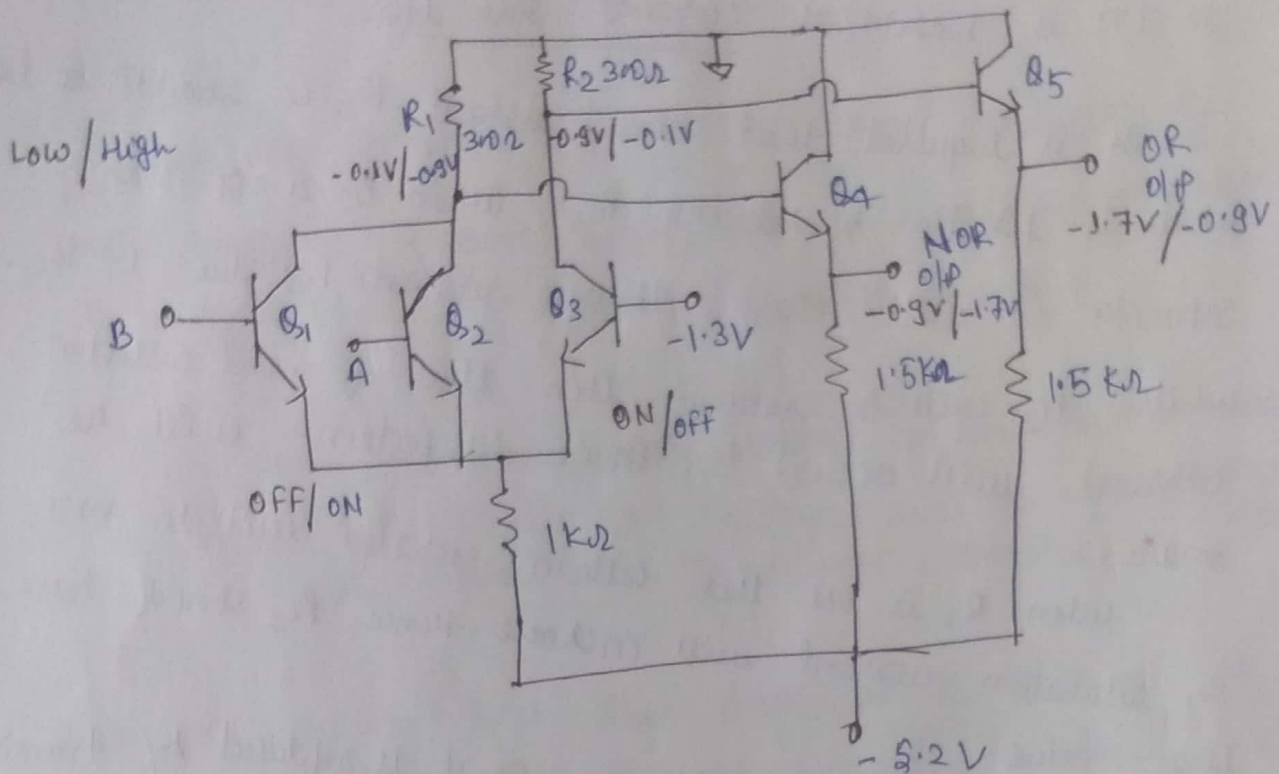 R2 300Ω
Q5
Low/High
R1
300Ω
-0.1V/-0.9V
-0.9V/-0.1V
OR
O/P
-1.7V/-0.9V
Q4
NOR
O/P
-0.9V/-1.7V
B
Q1
A
Q2
Q3
-1.3V
1.5KΩ
1.5KΩ
ON/OFF
OFF/ON
1KΩ
-5.2V